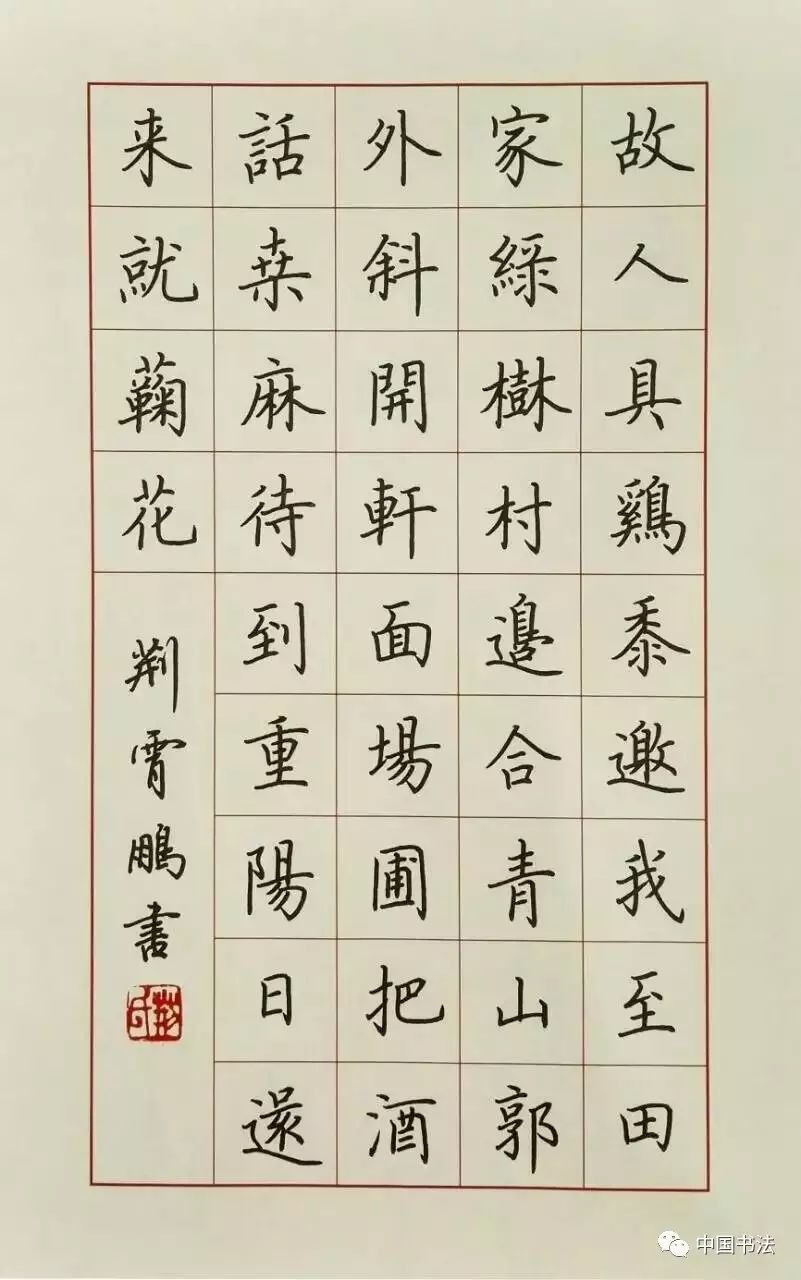 故人具鷄黍邀我至田
家綠樹村邊合青山郭
外斜開軒面場圃把酒
話桒麻待到重陽日還
来就蘜花
荆霄鵬書
中国书法